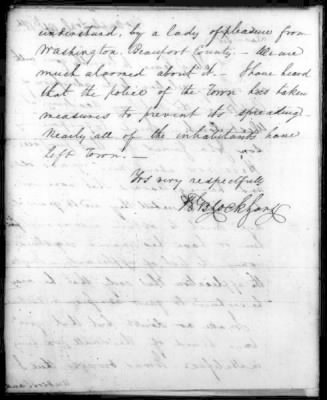 understand, by a lady of pleasure from
Washington, Beaufort County - We are
much alarmed about it - I have heard
that the police of the Town has taken
measures to prevent its spreading.
Nearly all of the inhabitants have
left Town. -
Yrs very respectfully